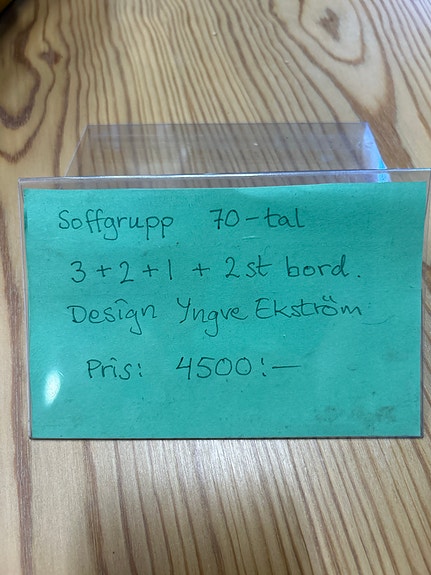 Soffgrupp 70-tal
3+2+1 + 2st bord.
Design Yngve Ekström
Pris: 4500:-